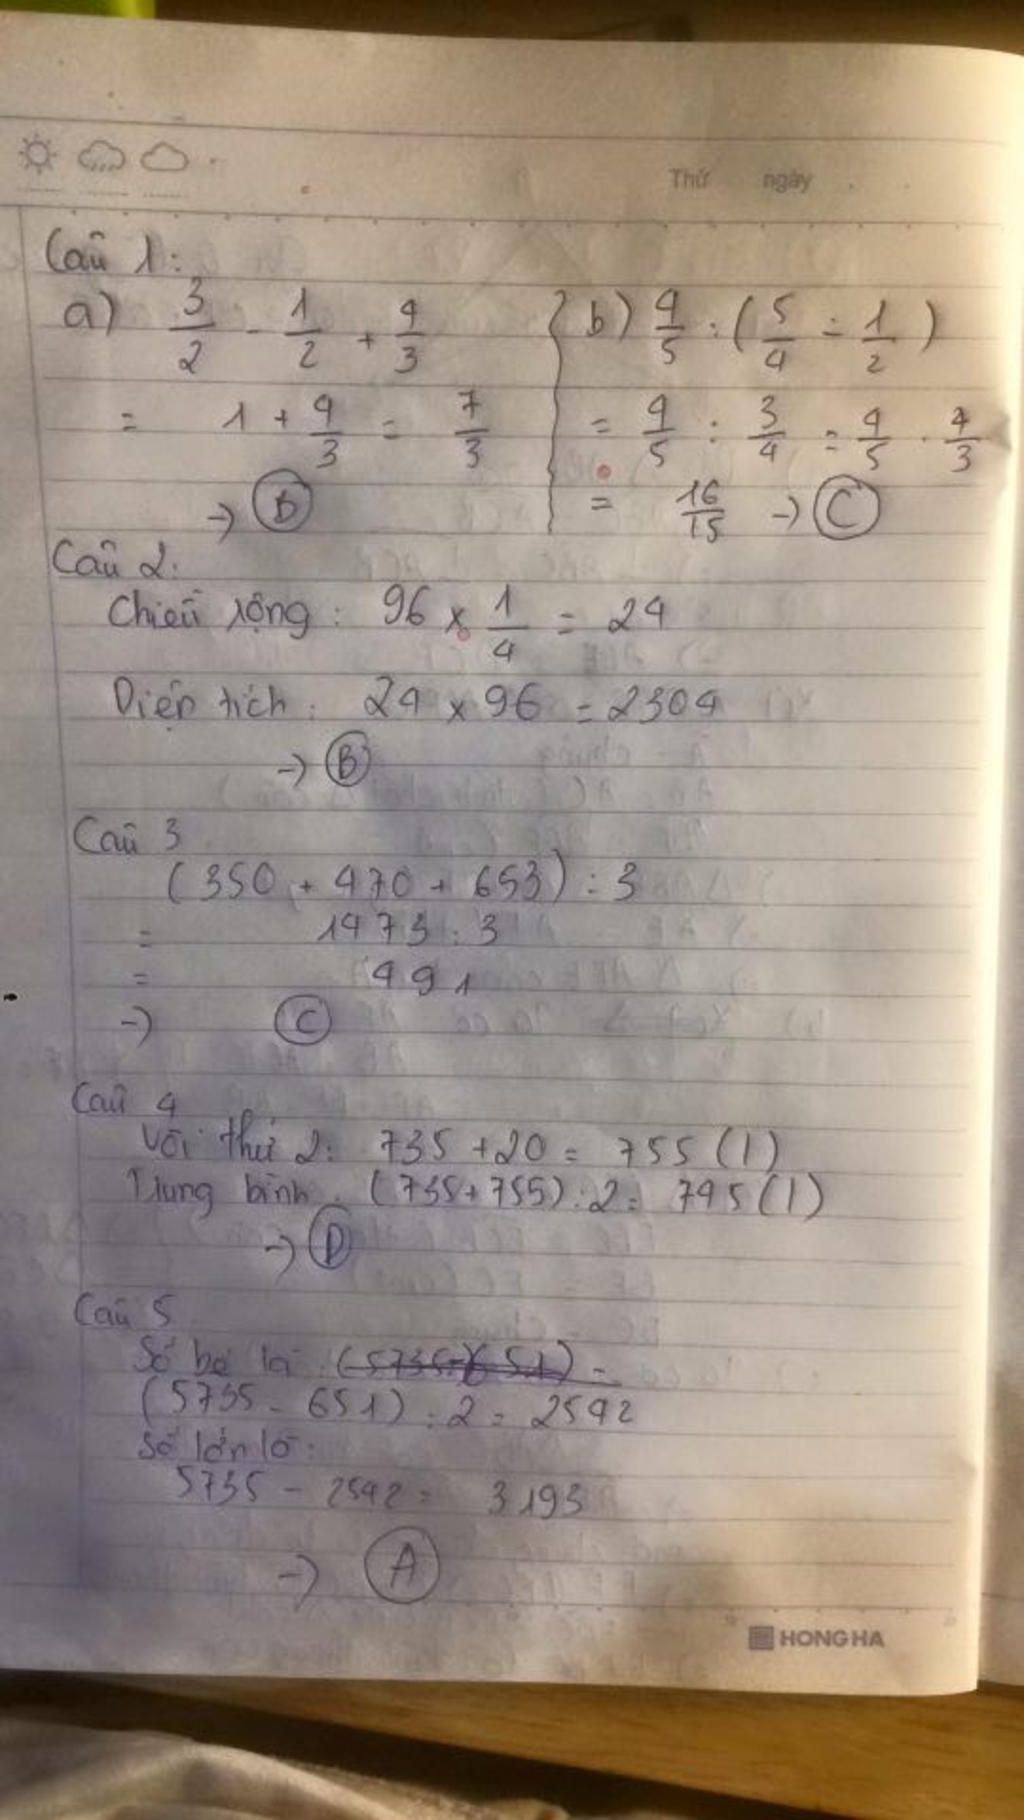 Thứ ngày
Câu 1:
a) 3/2 - 1/2 + 4/3
= 1 + 4/3 = 7/3
→ B
b) 4/5 : (5/4 - 1/2)
= 4/5 : 3/4 = 4/5 . 4/3
= 16/15 → C
Câu 2:
Chiều rộng: 96 x 1/4 = 24
Diện tích: 24 x 96 = 2304
→ B
Câu 3
(350 + 470 + 653) : 3
= 1473 : 3
= 491
→ C
Câu 4
Vòi thứ 2: 735 + 20 = 755 (l)
Trung bình: (735 + 755) : 2 = 745 (l)
→ D
Câu 5
Số bé là: (5735 - 651) =
(5735 - 651) : 2 = 2542
Số lớn là:
5735 - 2542 = 3193
→ A
HONG HA